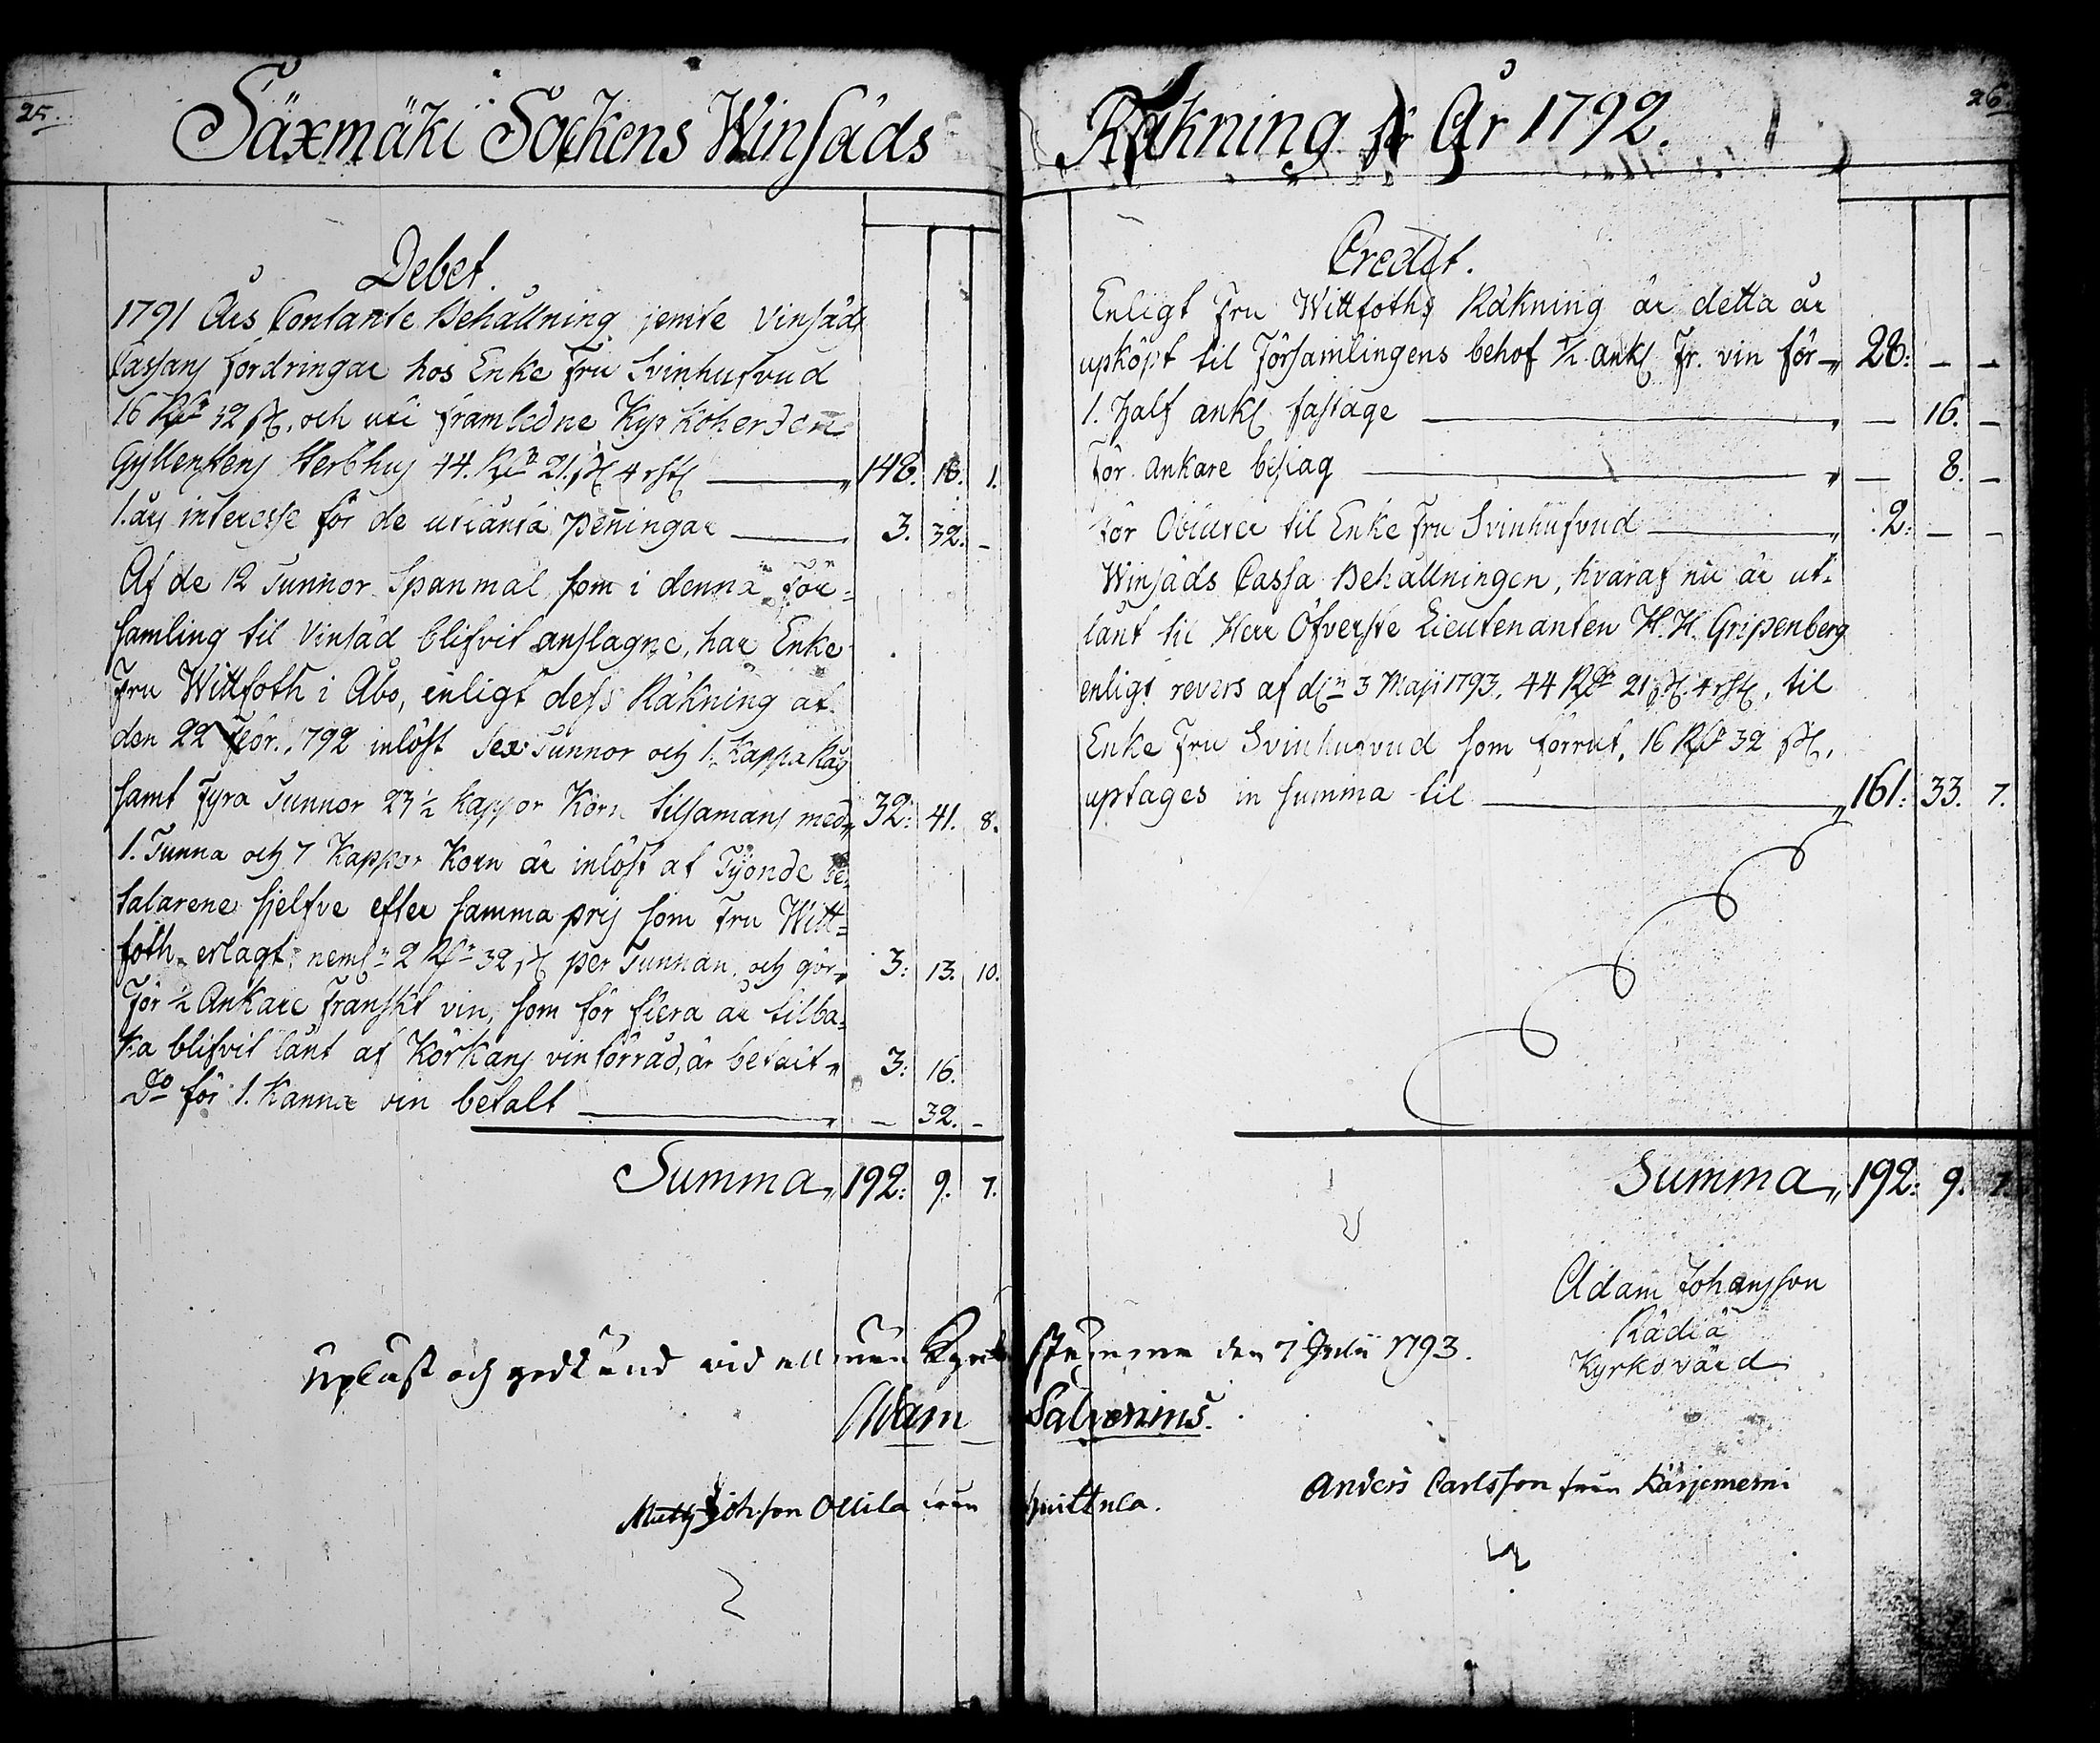 25.
Säxmäki Sockens Winsäds
Debet.
1791 Års Contante Behållning jemte Vinsäds
Cassans fordringar hos Enke Fru Svinhufvud
16 Rdr 32 sk. och uti framledne Kyrkoherden
Gyllenbens Sterbhus 44. Rdr 21. sk 4 rst 148. 10. 1.
1. års interesse för de utlånta peningar 3. 32. -
Af de 12 Tunnor Spanmål som i denna För=
samling til Vinsäd blifvit anslagne, har Enke
Fru Wittfoth i Åbo, enligt dess Räkning af
den 22 Febr. 1792 inlöst Sex Tunnor och 1. Kappa Råg
samt Fyra Tunnor 23 1/2 kappor Korn tilsamans med 32: 41. 8.
1. Tunna och 7 Kappor Korn är inlöst af Tijonde be=
talarene sjelfve efter samma pris som Fru Witt=
foth erlagt, neml. 2 Rdr 32 sk per Tunnan, och gör 3: 13. 10.
För 1/2 Ankare Franskt vin, som för flera år tilba=
ka blifvit lånt af Körkans vin förråd, är betalt 3: 16.
Do för 1. Kanna vin betalt - 32. -
Summa 192: 9. 7.
26.
Räkning för År 1792.
Credit.
Enligt Fru Wittfoths Räkning är detta år
upköpt til Församlingens behof 1/2 ank. Fr. vin för 28: - -
1. half ank. fastage - 16. -
För ankare beslag - 8. -
För Oblater til Enke Fru Svinhufvud 2: - -
Winsäds Cassa Behållningen, hvaraf nu är ut=
lånt til Herr Öfverste Lieutenanten H. H. Gripenberg
enligt revers af den 3 Maji 1793. 44 Rdr 21 sk. 4 rst, til
Enke Fru Svinhufvud som förrut, 16 Rdr 32 sk.
uptages in summa til 161: 33. 7.
Summa 192: 9. 7.
Adam Johansson
Rädiä
Kyrkovärd
Upläst och godkänd vid allmän Kyrko stämma den 7 Julii 1793.
Adam Salvenius.
Matts Johsson Ollila från Huittula.
Anders Carlsson från Kärjemerni